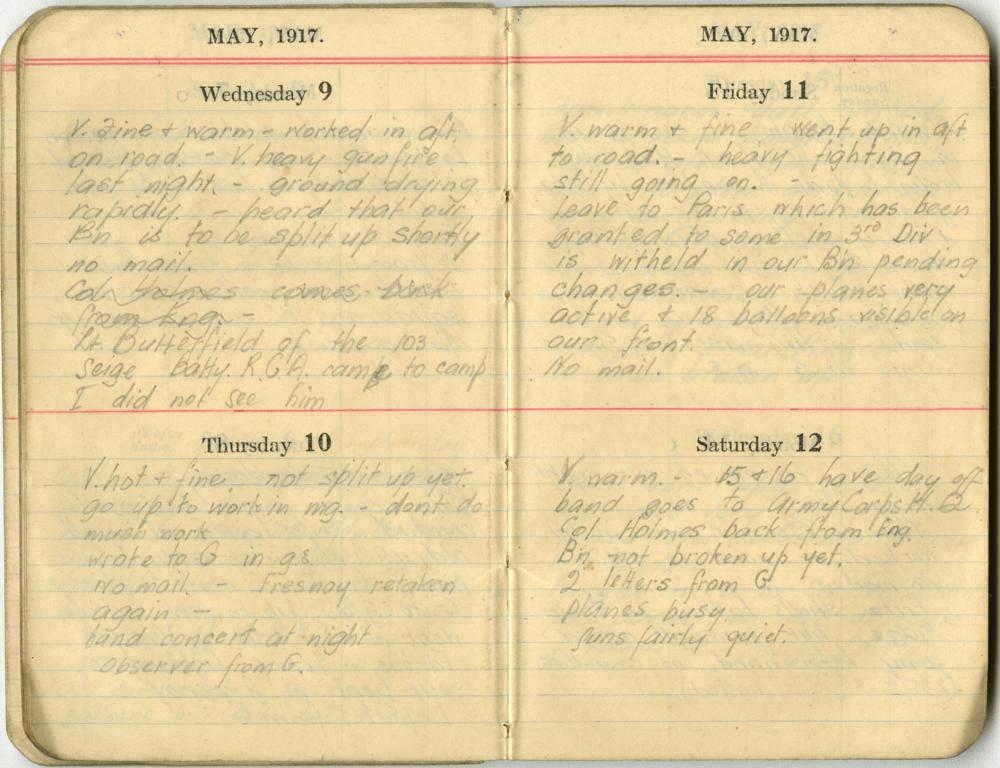 MAY, 1917.
Wednesday 9
V. Fine + warm - worked in aft.
on road. - V. heavy gunfire
last night. - ground drying
rapidly. - heard that our
Bn is to be split up shortly
no mail.
Col Holmes comes back
from Eng. -
Lt. Butterfield of the 103
Seige Batty. R.G.A. came to camp
I did not see him
Thursday 10
V. hot + fine, not split up yet.
go up to work in mg. - dont do
much work
wrote to G in g.e.
No mail. - Fresnoy retaken
again -
band concert at night
Observer from G.
MAY, 1917.
Friday 11
V. warm + fine went up in aft
to road. - heavy fighting
still going on. -
Leave to Paris which has been
granted to some in 3rd Div
is witheld in our Bn. pending
changes. - our planes very
active + 18 balloons visible on
our front.
No mail.
Saturday 12
V. warm. - 15 + 16 have day off
band goes to Army Corps H.Q.
Col Holmes back from Eng.
Bn. not broken up yet.
2 letters from G.
planes busy.
Guns fairly quiet.